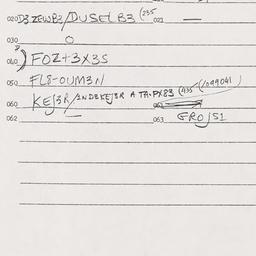 020 D3ZEWB3/DUSEL B3 (235 021 —
030 O
040 ) FOZ+3X3S
050 FL8-0UM3N
060 KEJ3R/2ND3KEJ3R A TA-PX83 (435 (/099041)
062 — 063 GROJS1